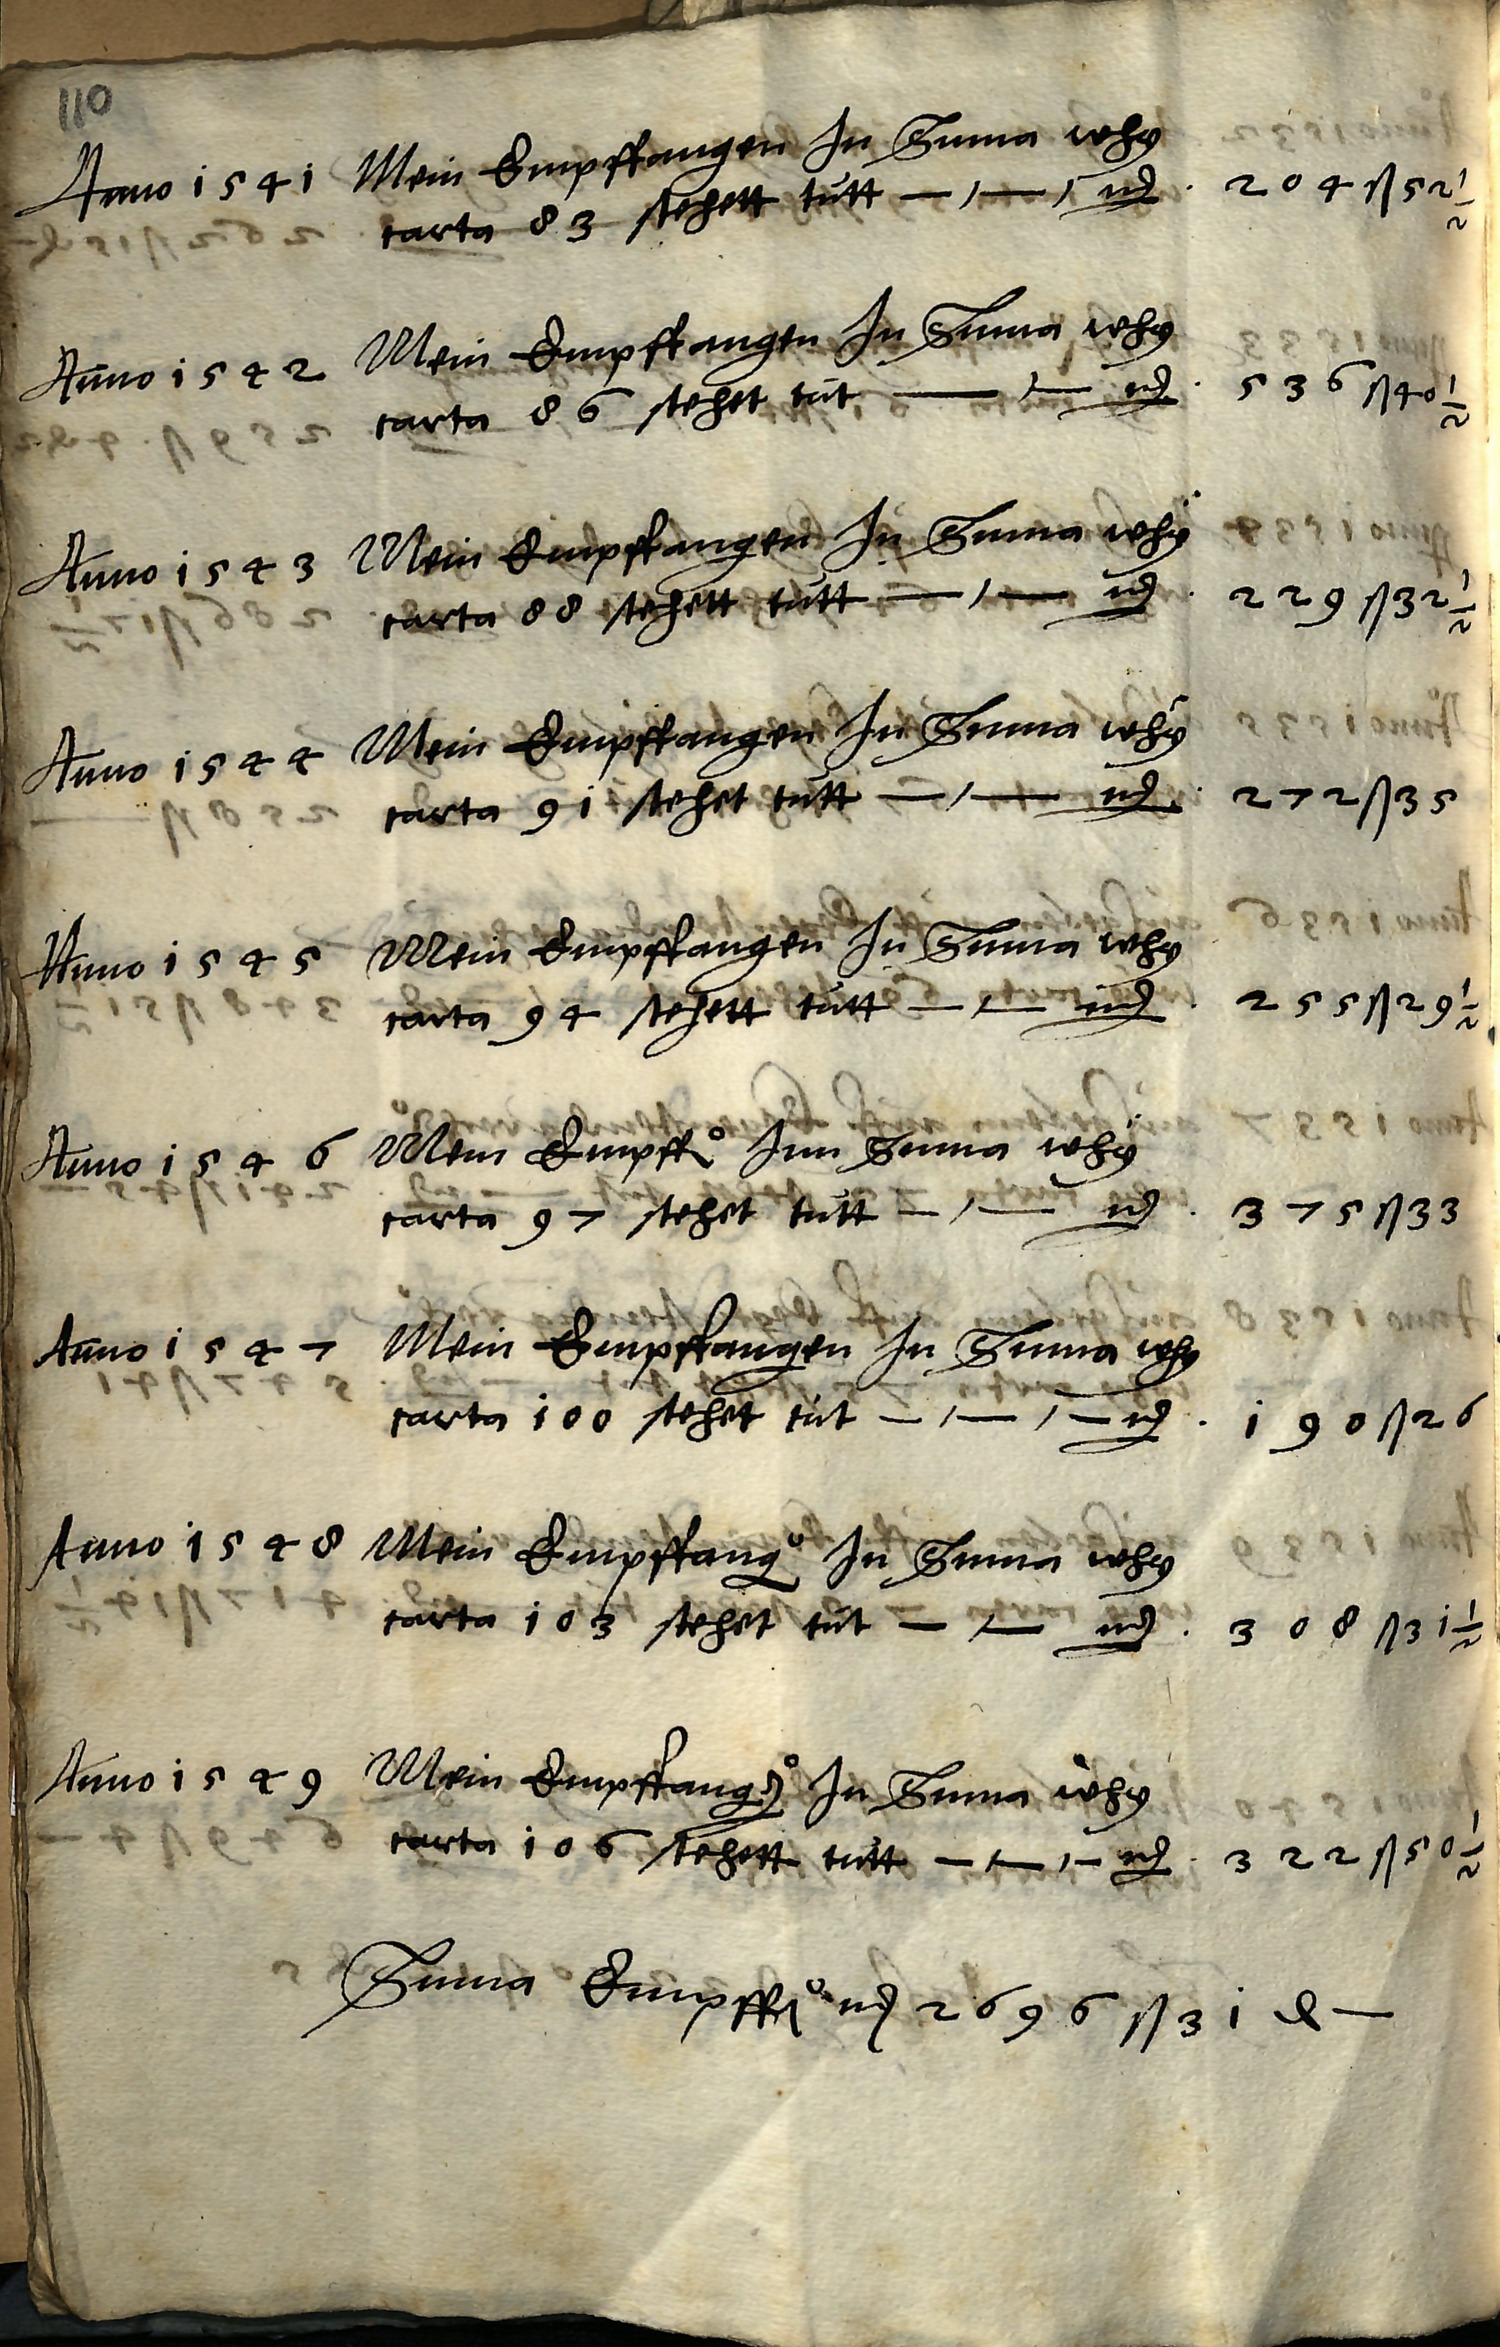 110
Anno 1541 Mein Empffangen In Suma why
carta 83 stehett tutt — / — / md . 204 ß 52 1/2
Anno 1542 Mein Empffangen In Suma why
carta 86 stehet tut — / — md . 536 ß 40 1/2
Anno 1543 Mein Empffangen In Suma whÿ
carta 88 stehett tutt — / — md . 229 ß 32 1/2
Anno 1544 Mein Empffangen In Suma whÿ
carta 91 stehet tutt — / — md . 272 ß 35
Anno 1545 Mein Empffangen In Suma why
carta 94 stehett tutt — / — md . 255 ß 29 1/2
Anno 1546 Mein Empff° Inn Suma whÿ
carta 97 stehet tutt — / — md . 375 ß 33
Anno 1547 Mein Empffangen In Suma why
carta 100 stehet tut — / — / — md . 190 ß 26
Anno 1548 Mein Empffang° In Suma why
carta 103 stehet tut — / — md . 308 ß 31 1/2
Anno 1549 Mein Empffang° In Suma why
carta 106 stehett tutt — / — / — md . 322 ß 50 1/2
Suma Empff° md 2696 ß 31 d —